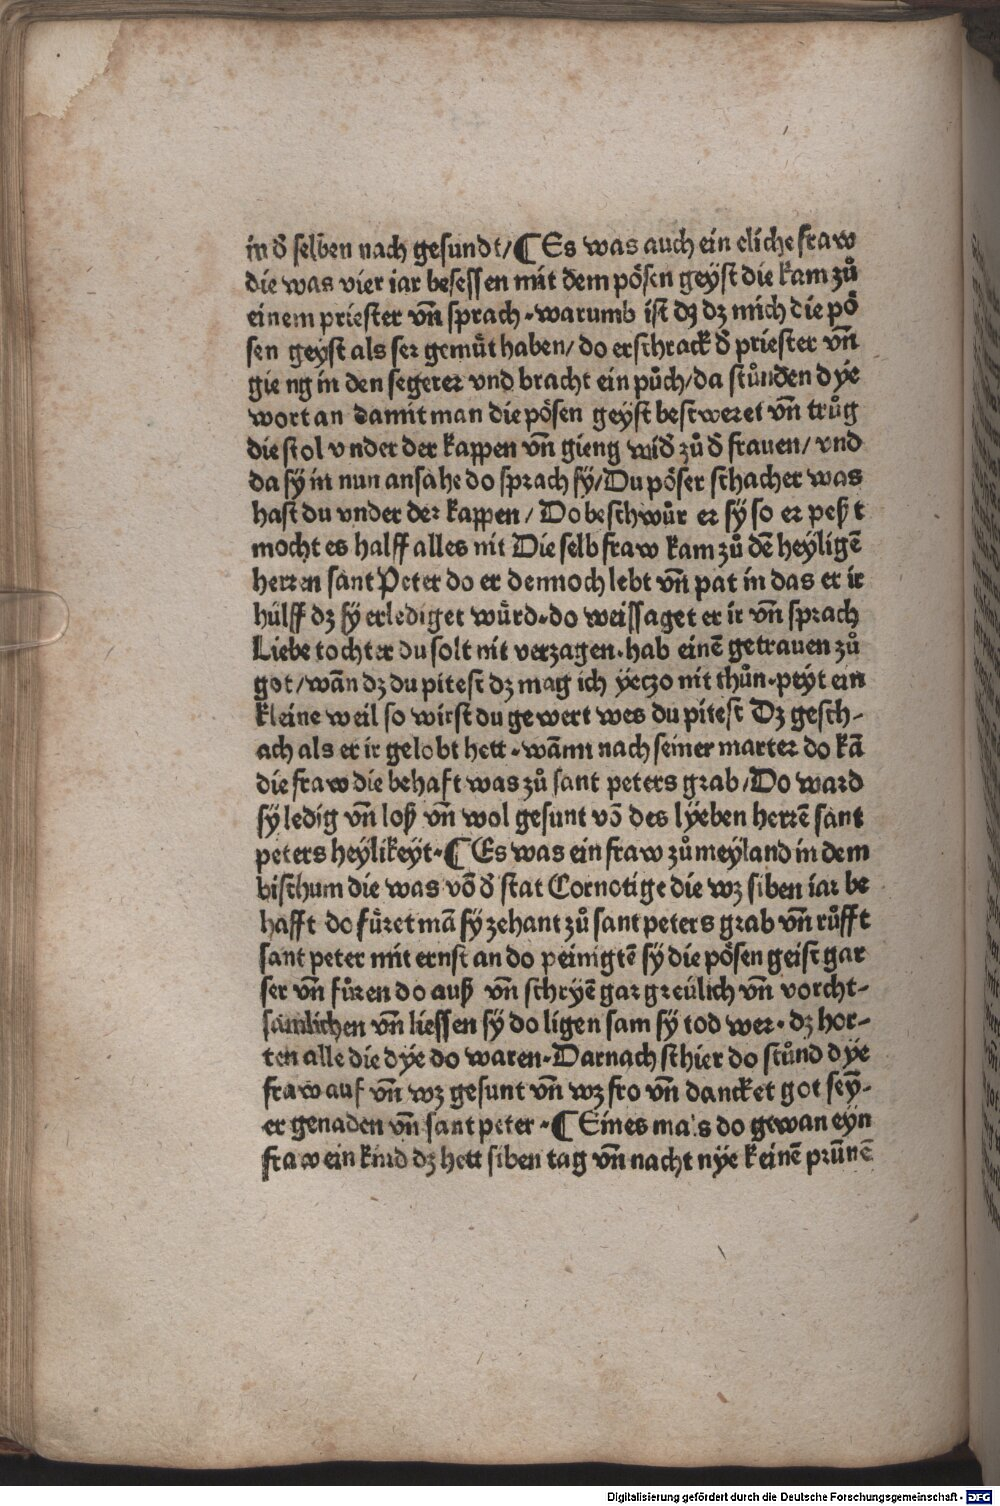 in đ selben nach gesundt/ ¶ Es was auch ein eliche fraw
die was vier iar besessen mit dem pösen geÿst die kam zů
einem priester vn̄ sprach · warumb ist dʒ dʒ mich die pö
sen geÿst als ser gemüt haben/ do erschrack đ priester vn̄
gieng in den segerer vnd bracht ein půch/ da stůnden dÿe
wort an damit man die pösen geÿst besweret vn̄ trůg
die stol vnder der kappen vn̄ gieng wiđ zů đ frauen/ vnd
da sÿ in nun ansahe do sprach sÿ/ Du pöser schacher was
hast du vnder der kappen/ Do beschwůr er sÿ so er peßt
mocht es halff alles nit Die selb fraw kam zů dē heÿligē
herren sant Peter do er dennoch lebt vn̄ pat in das er ir
hülff dʒ sÿ erlediget würd · do weissaget er ir vn̄ sprach
Liebe tochter du solt nit verzagen · hab einē getrauen zů
got/ wān dʒ du pitest dʒ mag ich ÿeczo nit thůn · peÿt ein
kleine weil so wirst du gewert wes du pitest Dʒ gesch-
ach als er ir gelobt hett · wānn nach seiner marter do kā
die fraw die behaft was zů sant peters grab/ Do ward
sÿ ledig vn̄ loß vn̄ wol gesunt vō des lÿeben herrē sant
peters heÿlikeyt · ¶ Es was ein fraw zů meyland in dem
bisthum die was vō đ stat Cornotige die wʒ siben iar be
hafft do füret mā sÿ zehant zů sant peters grab vn̄ růfft
sant peter mit ernst an do peinigtē sÿ die pösen geist gar
ser vn̄ fůren do auß vn̄ schryē gar greülich vn̄ vorcht-
samlichen vn̄ liessen sÿ do ligen sam sÿ tod wer · dʒ hor-
ten alle die dÿe do waren · Darnach schier do stůnd dÿe
fraw auf vn̄ wʒ gesunt vn̄ wʒ fro vn̄ dancket got seÿ-
er genaden vn̄ sant peter · ¶ Eines mals do gewan eÿn
fraw ein kind dʒ hett siben tag vn̄ nacht nÿe keinē prünē
Digitalisierung gefördert durch die Deutsche Forschungsgemeinschaft - DFG